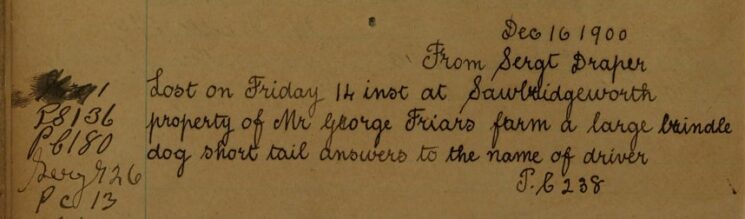 Dec 16 1900
From Sergt Draper
Lost on Friday 14 inst at Sawbridgeworth
property of Mr George Friars farm a large brindle
dog short tail answers to the name of driver
P.C 238
PS 136
PC 180
Serg 26
PC 13